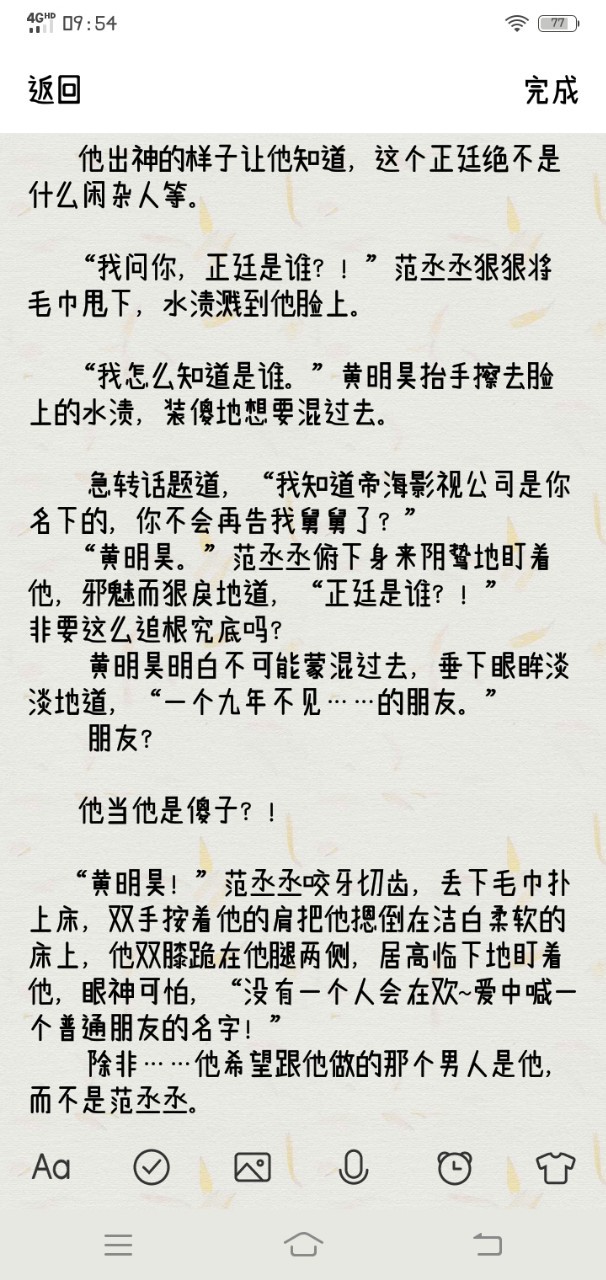 4G HD 09:54 77
返回 完成
他出神的样子让他知道，这个正廷绝不是
什么闲杂人等。
“我问你，正廷是谁？！”范丞丞狠狠将
毛巾甩下，水渍溅到他脸上。
“我怎么知道是谁。”黄明昊抬手擦去脸
上的水渍，装傻地想要混过去。
急转话题道，“我知道帝海影视公司是你
名下的，你不会再告我舅舅了？”
“黄明昊。”范丞丞俯下身来阴鸷地盯着
他，邪魅而狠戾地道，“正廷是谁？！”
非要这么追根究底吗？
黄明昊明白不可能蒙混过去，垂下眼眸淡
淡地道，“一个九年不见……的朋友。”
朋友？
他当他是傻子？！
“黄明昊！”范丞丞咬牙切齿，丢下毛巾扑
上床，双手按着他的肩把他摁倒在洁白柔软的
床上，他双膝跪在他腿两侧，居高临下地盯着
他，眼神可怕，“没有一个人会在欢~爱中喊一
个普通朋友的名字！”
除非……他希望跟他做的那个男人是他，
而不是范丞丞。
Aa